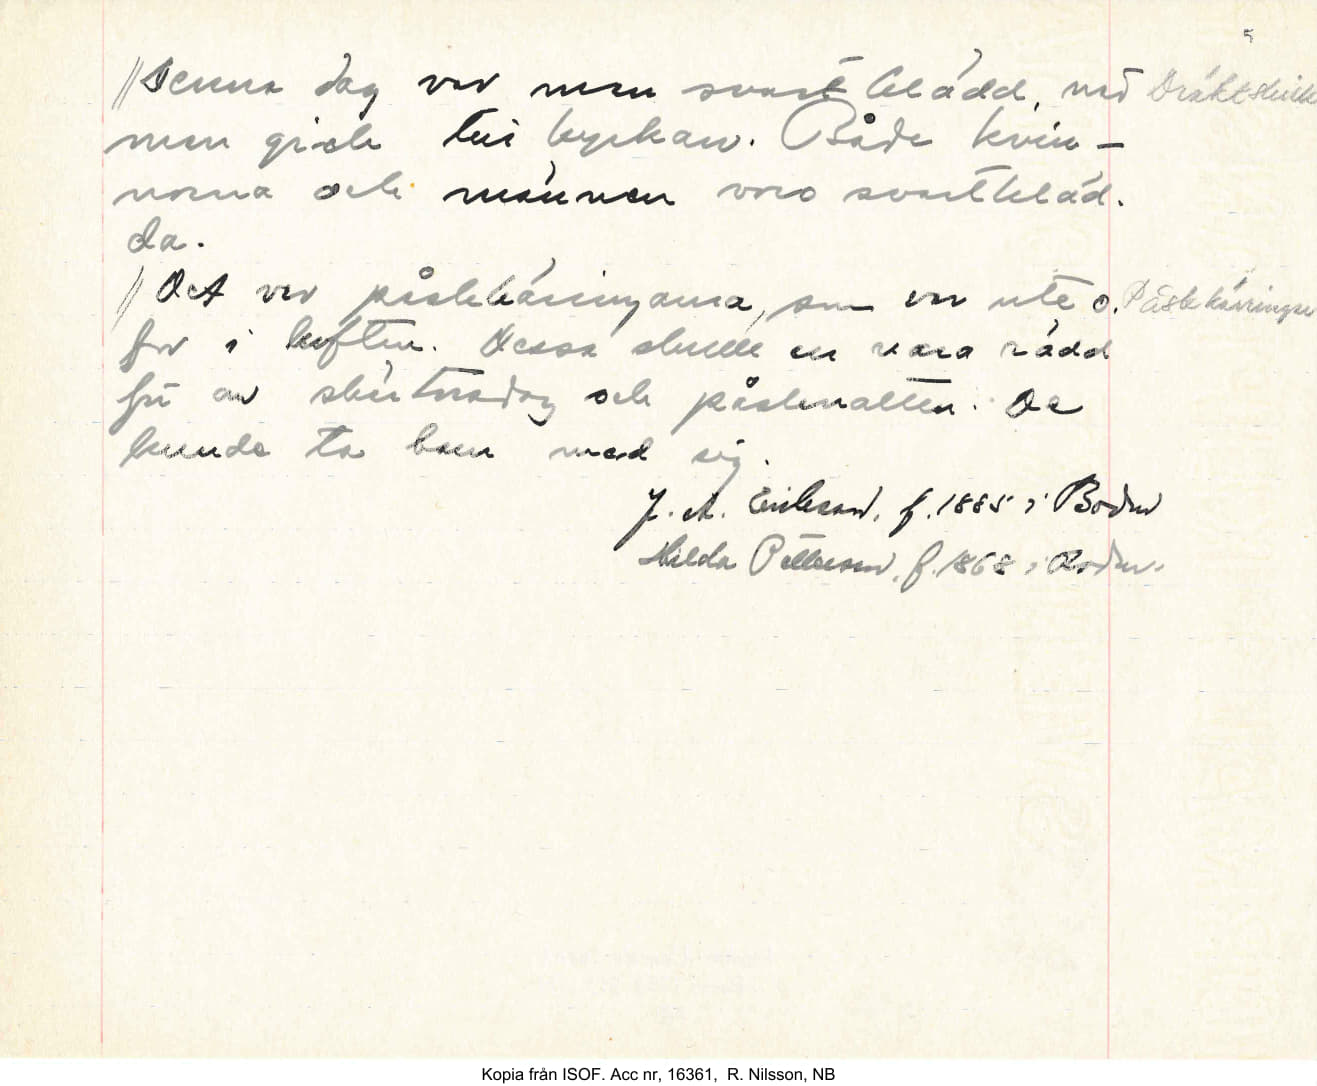 5
Denna dag var man svart klädd, när
man gick till kyrkan. Både kvin-
norna och männen voro svartkläd-
da.
Dräktskick
Det var påskkäringarna, som var ute o.
for i luften. Dessa skulle en vara rädd
för av skärtorsdag och påsknatten. De
kunde ta barn med sig.
Påskkärringar
J. A. Erikson, f. 1885 i Bodun
Hilda Petterson, f. 1868 i
Kopia från ISOF. Acc nr, 16361, R. Nilsson, NB